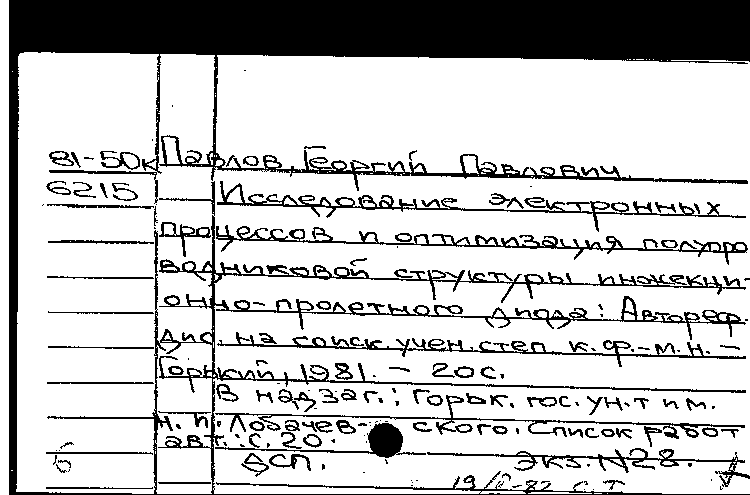 81-50к Павлов, Георгий Павлович.
6215 Исследование электронных
процессов и оптимизация полупро
водниковой структуры инжекци-
онно-пролетного диода: Автореф.
дис. на соиск. учен. степ к.ф.-м.н. –
Горький, 1981. – 20с.
В надзаг.: Горьк. гос. ун-т им.
Н. И. Лобачев- ского. Список работ
авт.: с. 20.
б ДСП. Экз. N28.